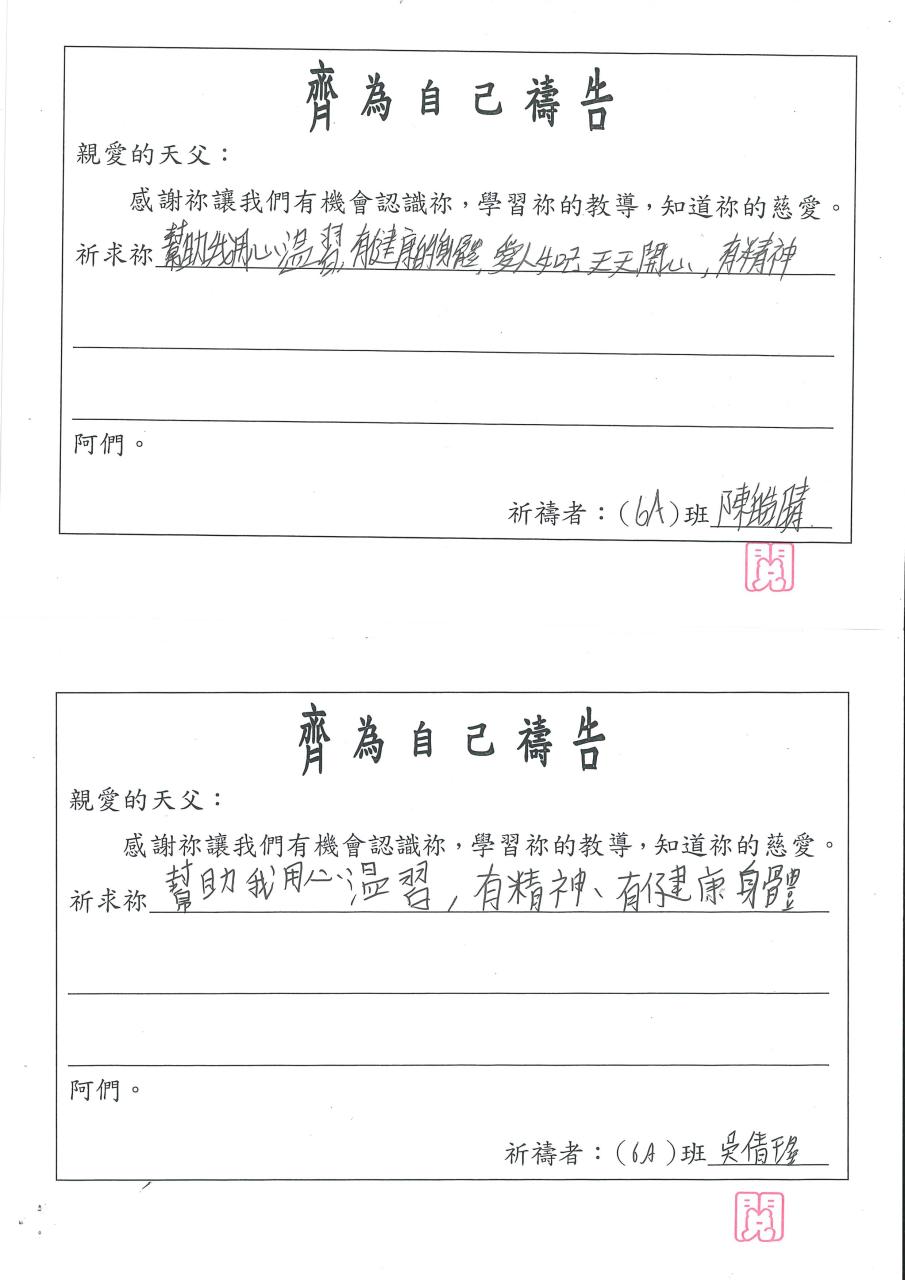 齊為自己禱告
親愛的天父：
感謝祢讓我們有機會認識祢，學習祢的教導，知道祢的慈愛。
祈求祢幫助我用心溫習，有健康的身體，愛人生吧天天開心，有精神
阿們。
祈禱者：（6A）班陳皓晴
閱
齊為自己禱告
親愛的天父：
感謝祢讓我們有機會認識祢，學習祢的教導，知道祢的慈愛。
祈求祢幫助我用心溫習，有精神、有健康身體
阿們。
祈禱者：（6A）班吳倩瑩
閱